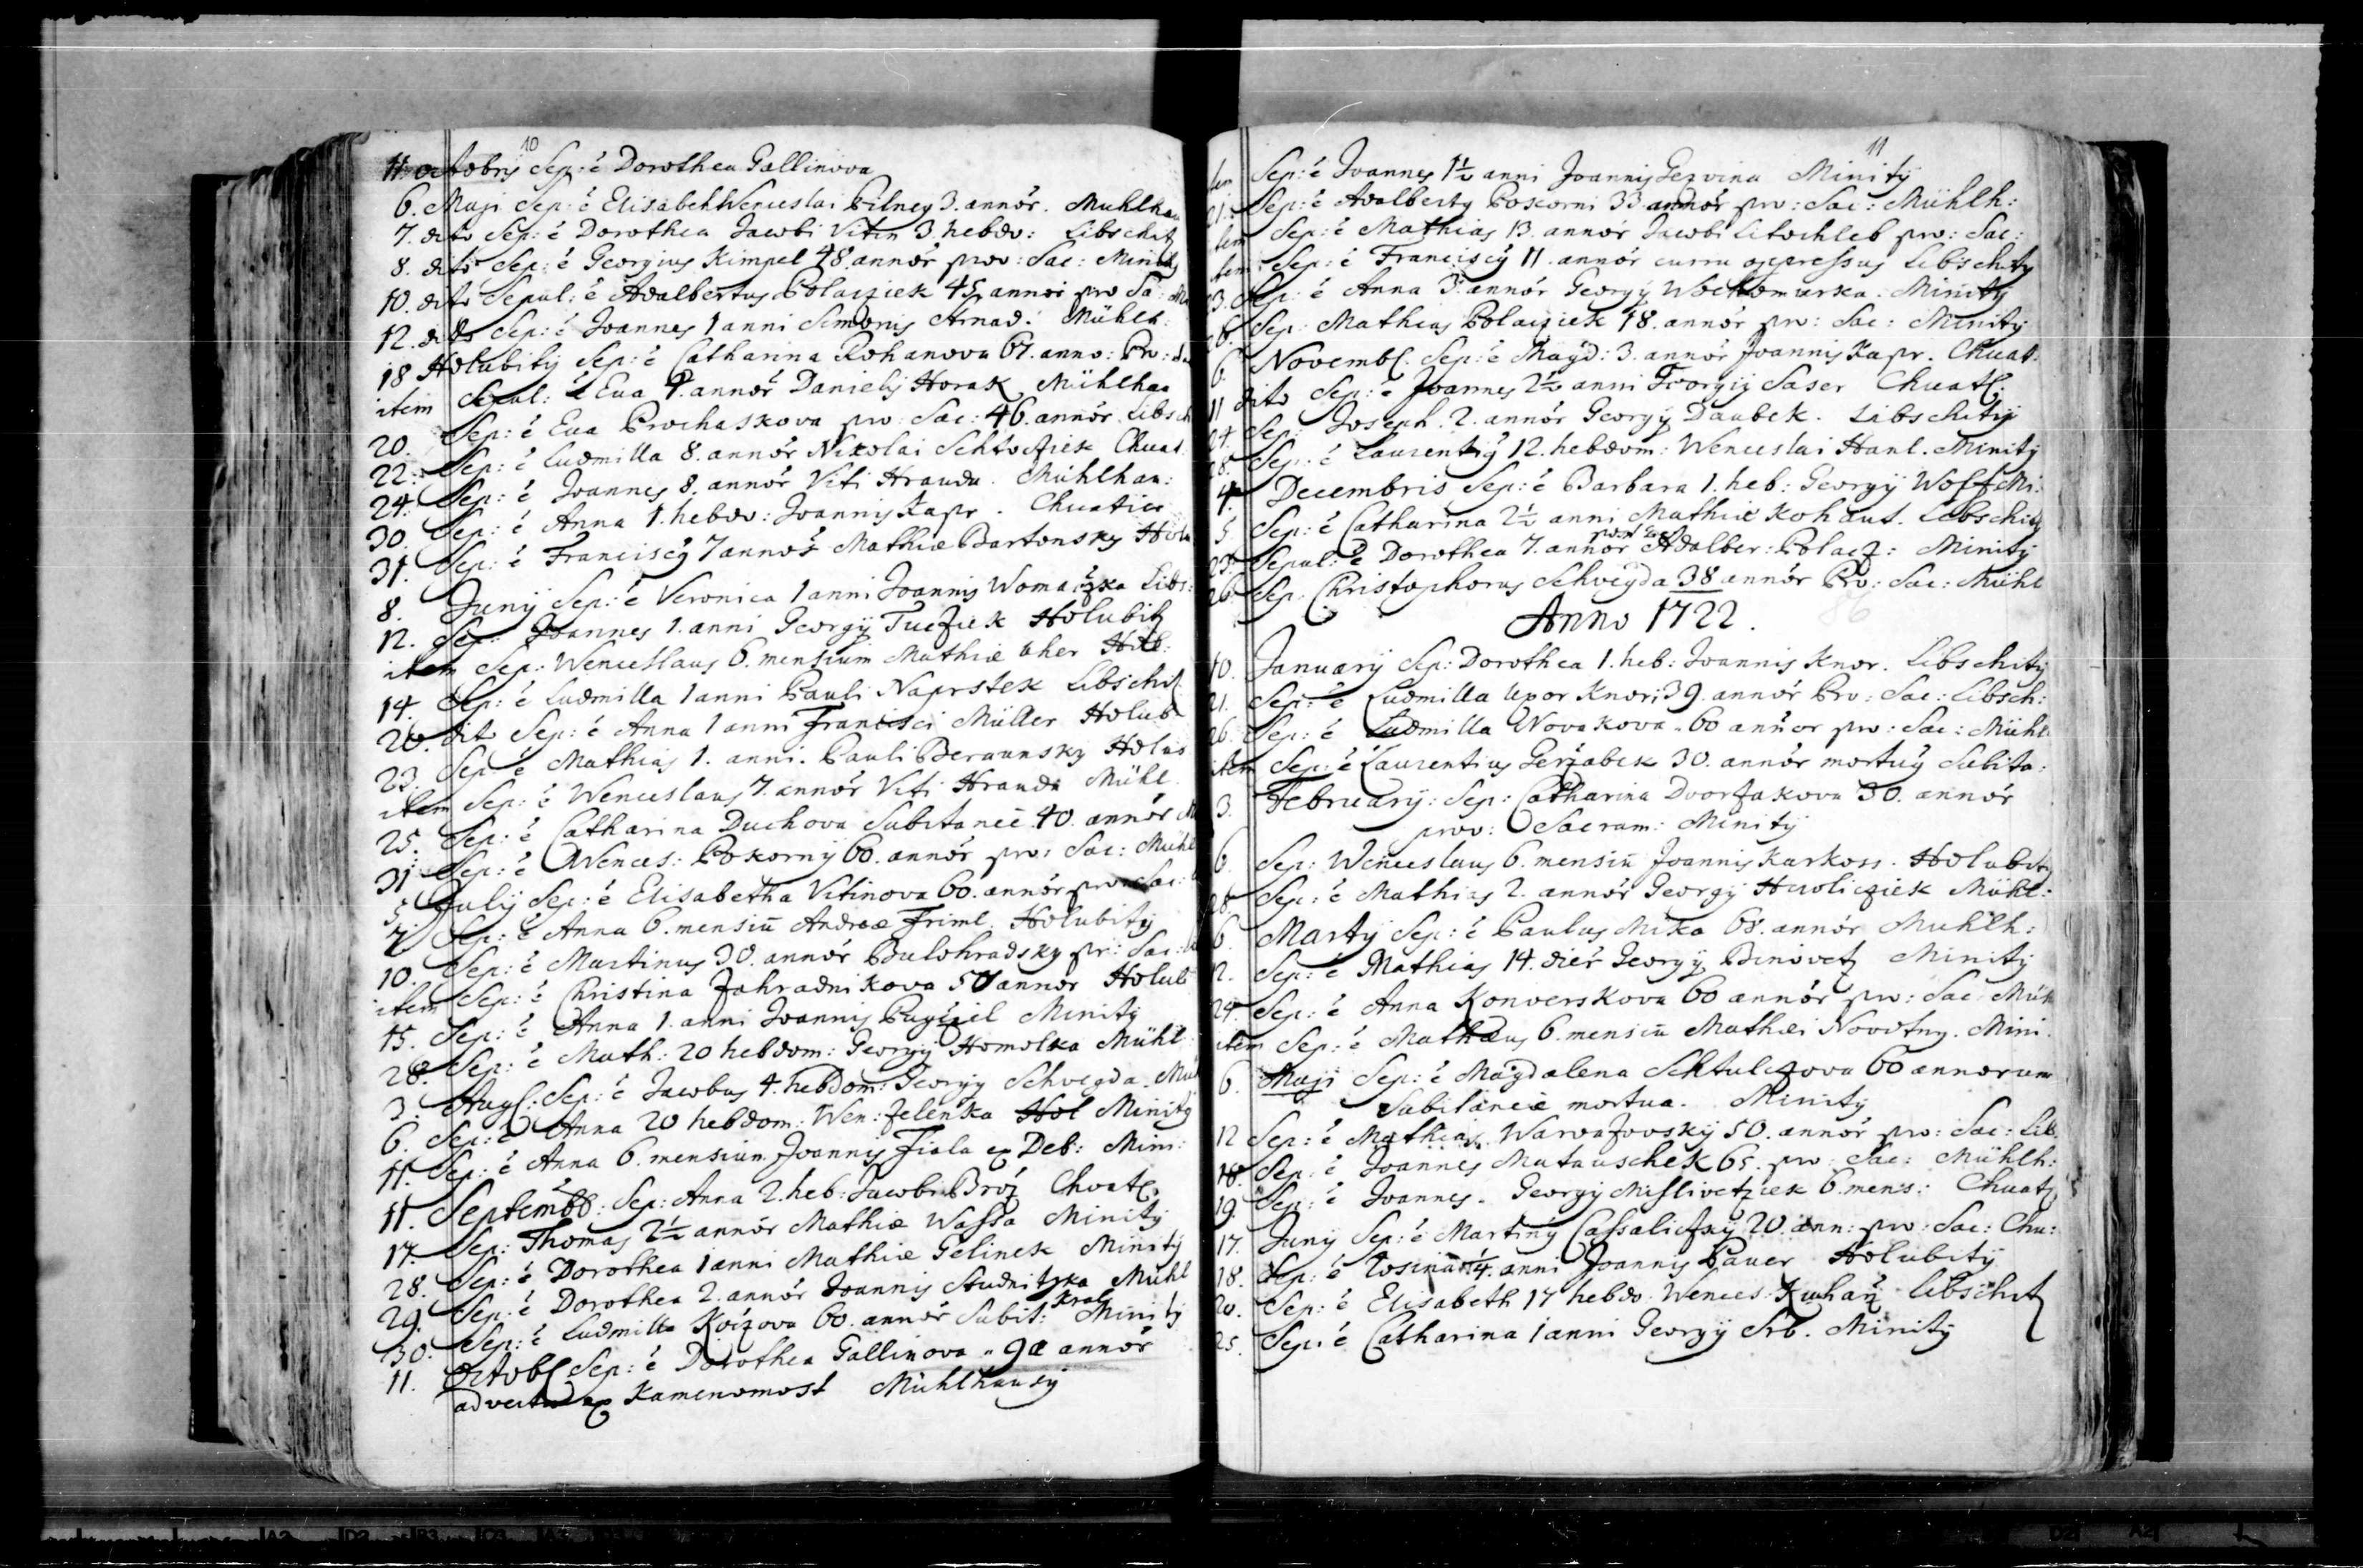 10
11. octobris Sep: ê Dorothea Gallinova
6. Maji Sep: ê Elisabeth Wenceslai Pilney 3. annôr. Muhlhau
7. dito Sep: ê Dorothea Jacobi Vitin 3. hebdo: Libschitz
8. dito Sep: ê Georgius Kimpel 48. annôr prov: Sac: Minitz
10. dito Sepul: ê Adalbertus Polacziek 45 annôr pro Sa:
12. dito Sep: ê Joannes 1 anni Simonis Arnad: Mühlh:
18 Holubitz Sep: ê Catharina Rohanova 67. anno: Pro:
item Sepul: ê Eva annôr Danielis Horak Mühlhau
20. Sep: ê Eva Prochaskova pro: Sac: 46. annôr. Libsch
22: Sep: ê Ludmilla 8. annôr Nikolai Chuat.
24: Sep: ê Joannes 8. annôr Viti Hrauda. Mühlhau:
30. Sep: ê Anna 1. hebdo: Joannis Kapr. Chuatie
31. Sep: ê Franciscus 7 annôr Mathiæ Bartonsky Holu
8. Junij Sep: ê Veronica 1 anni Joannis Womaczka Libs:
12. Sep: Joannes 1. anni Georgij Tuczek Holubitz
item Sep: Wenceslaus 6. mensium Mathiæ Uher Hol:
14. Sep: ê Ludmilla 1 anni Pauli Naprstek Libschitz
20. dito Sep: ê Anna 1 anni Francisci Müller Holub
23. Sep ê Mathias 1. anni. Pauli Beraunsky Holub
item Sep: ê Wenceslaus 7. annôr Viti Hrauda Mühl.
25. Sep: ê Catharina Duchova Subitanee 40. annôr
31 Sep: ê Wences: Pokorny 60. annôr pro: Sac: Mühl
5 Julij Sep: ê Elisabetha Vitinova 60. annôr prov Sac:
7 Sep: ê Anna 6. mensiũ Andreæ Friml. Holubitz
10. Sep: ê Martinus 30. annôr Bulohradsky pr: Sac:
item Sep: ê Christina Zahradnikova 50 annôr Holub
15. Sep: ê Anna 1. anni Joannis Minitz
28. Sep: ê Math: 20 hebdom: Georgij Homolka Mühl:
3. Aug: Sep: ê Jacobus 4. hebdom: Georgij Schvegda. Mü
6. Sep: ê Anna 20 hebdom: Wen: Zelenka Hol Minitz
11. Sep: ê Anna 6. mensium Joannis Fiala ex Deb: Mini:
11. Septemb: Sep: Anna 2. heb: Jacobi Broz Chvat.
17. Sep: Thomas 2½ annôr Mathiæ Wassa Minitz
28. Sep: ê Dorothea 1 anni Mathiæ Gelinek Minitz
29. Sep: ê Dorothea 2. annôr Joannis Studnitzka Mühl
30. Sep: ê Ludmilla 60. annôr Subit: Kral Minitz
11. Octob: Sep: ê Dorothea Gallinova 90 annôr
advecta ex Kamenomost Mühlhausy
11
Sep: ê Joannes 1½ anni Joannis Minitz
21. Sep: ê Adalbertus Pokorni 33 annôr pro: Sac: Mühlh:
Sep: ê Mathias 13. annôr Jacobi Litochleb pro: Sac:
Sep: ê Franciscus 11. annôr curru oppressus Libschitz
Sep: ê Anna 3. annôr Georgij Minitz
Sep: Mathias Polacziek 18. annôr pr: Sac: Minitz
6. Novemb: Sep: ê Magd: 3. annôr Joannis Kapr. Chuat:
11 dito Sep: ê Joannes 2½ anni Georgij Saser Chuatt
24. Sep: Joseph. 2. annôr Georgij Daubek. Libschitz
28. Sep: ê Laurentius 12. hebdom: Wenceslai Hanl. Minitz
4. Decembris Sep: ê Barbara 1. heb: Georgij Woff Mi:
5. Sep: ê Catharina 2½ anni Mathiæ Kohaut. Libschitz
23. Sepul: ê Dorothea 7. annôr Adalber: Polacz: Minitz
26. Sep: Christophorus Schvegda 38 annôr Pro: Sac: Mühl
86
Anno 1722.
10. Januarij Sep: Dorothea 1. heb: Joannis Knor. Libschitz
21. Sep: ê Ludmilla Uxor Knori 39. annôr Pro: Sac: Libsch:
26. Sep: ê Ludmilla Novakova 60 annôr pro: Sac: Mühl
item Sep: ê Laurentius Gerzabek 30. annôr mortuus Subito:
3. Februarij: Sep: Catharina Dvorzakova 30. annôr
prov: Sacram: Minitz
6. Sep: Wenceslaus 6. mensiũ Joannis Karkoss. Holubitz
28. Sep: ê Mathias 2. annôr Georgij Hawliczek Mühl:
6. Martij Sep: ê Paulus Mika 68. annôr Muhlh:
12. Sep: ê Mathias 14. dier Georgij Binovetz Minitz
24. Sep: ê Anna Konverskova 60 annôr pro: Sac: Müh
item Sep: ê Mathæus 6. mensiũ Mathæi Novotny. Mini.
6. Maji Sep: ê Magdalena Schtulczova 60 annorum
Subitanee mortua. Minitz
12 Sep: ê Mathias Warvazovsky 50. annôr pro: Sac: Lib.
18. Sep: ê Joannes Matauschek 65. pro: Sac: Mühlh:
19. Sep: ê Joannes. Georgij Mislivetziek 6. mens: Chuatz
17. Juny Sep: ê Martinus 20. ann: pro: Sac: Chu:
18. Sep: ê Rosina anni Joannis Pauer Holubitz
20. Sep: ê Elisabeth 17 hebdo: Wences: Kuharz Libschitz
25. Sep: ê Catharina 1 anni Georgij Srb. Minitz